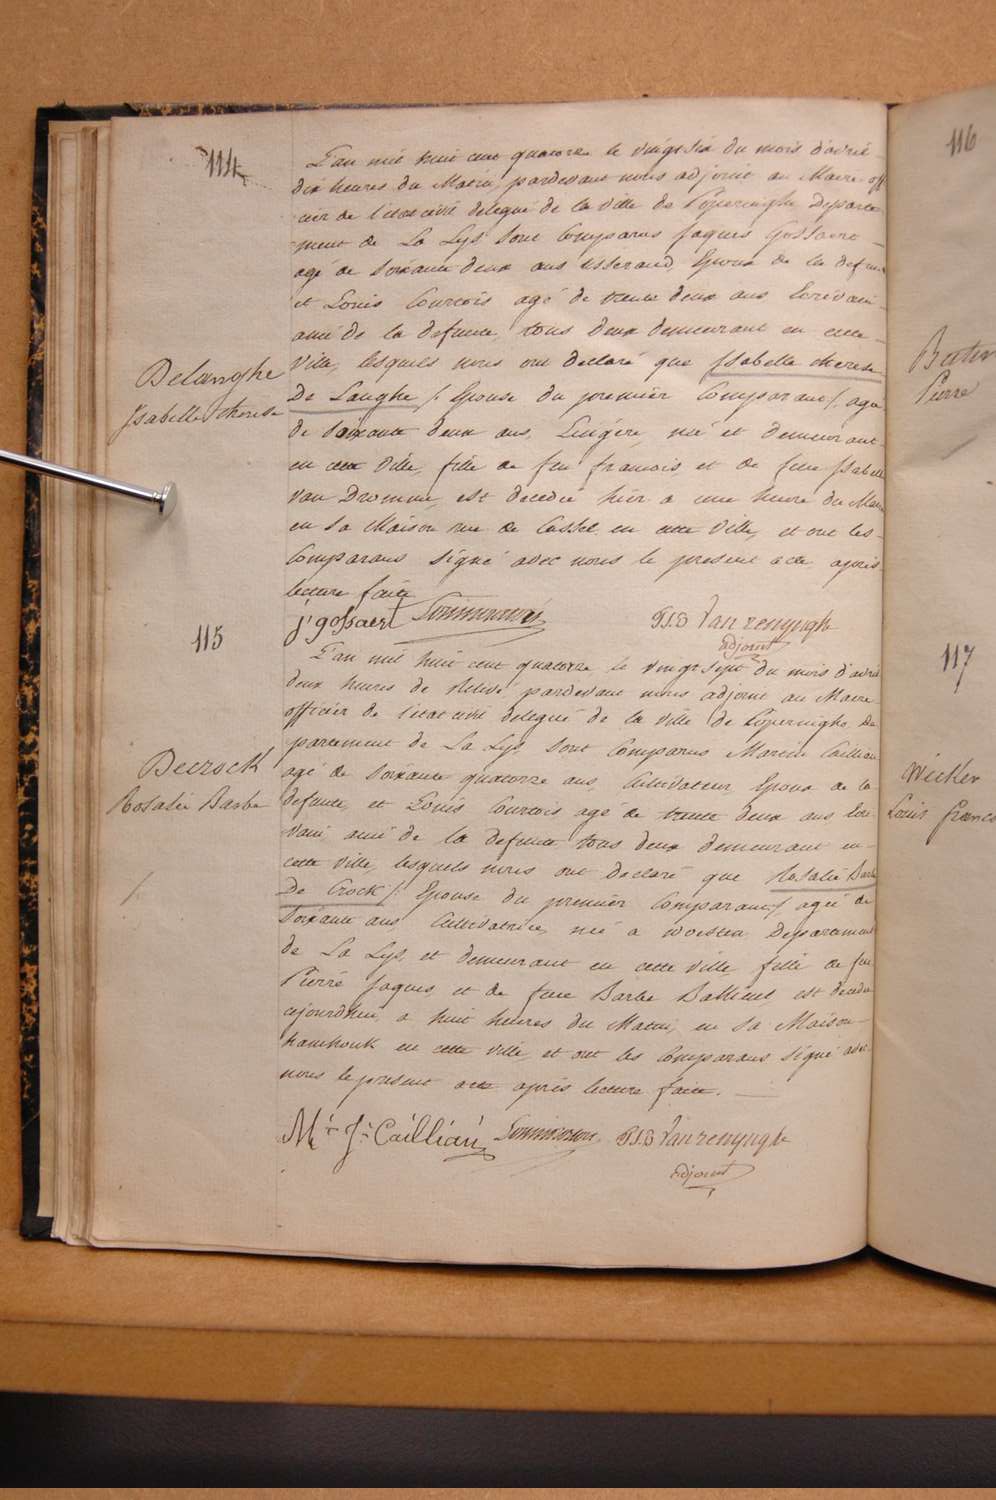 114
L'an mil huit cent quatorze le vingt six du mois d'avril
dix heures du Matin, pardevant nous adjoint au Maire off
cier de l'etat civil delegué de la Ville de Poperinghe Departe
ment de La Lys sont Comparus Jaques Gossaert
agé de soixante deux ans tisserand, Epoux de la defunte
et Louis Courtois agé de trente deux ans Ecrivain
ami de la defunte, tous deux demeurant en cette
Ville, lesquels nous ont declaré que Isabelle therese
De Langhe /: Epouse du premier Comparant :/ agée
de soixante deux ans, Lingère, née et demeurant
en cette Ville, fille de feu francois et de feue Isabelle
Van Dromme, est decedée hier a une heure du Matin
en sa Maison rue de Cassel en cette Ville, et ont les
Comparans signé avec nous le present acte après
lecture faite
Delanghe
Isabelle therese
j' gossaert
P.J.D Van renynghe
adjoint
115
L'an mil huit cent quatorze le vingt sept du mois d'avril
deux heures de relevé pardevant nous adjoint au Maire
officier de l'etat civil delegué de la Ville de Poperinghe De
partement de La Lys, sont Comparus Martin Caillian
agé de soixante quatorze ans, Cultivateur, Epoux de la
defunte, et Louis Courtois agé de trente deux ans Ecri
vain ami de la defunte tous deux demeurant en
cette Ville, lesquels nous ont declaré que Rosalie Barbe
De Crock /: Epouse du premier Comparant :/ agée de
soixante ans Cultivatrice, née a woesten Departement
de La Lys, et demeurant en cette Ville fille de feu
Pierre Jaques, et de feue Barbe est decedée
ajourdhui a huit heures du Matin, en sa Maison
hamhouk en cette Ville, et ont les Comparans signé avec
nous le present acte après lecture faite.
Decrock
Rosalie Barbe
Mr. J: Caillian
P.J.D Van renynghe
adjoint
116
Pierre
117
Louis francs